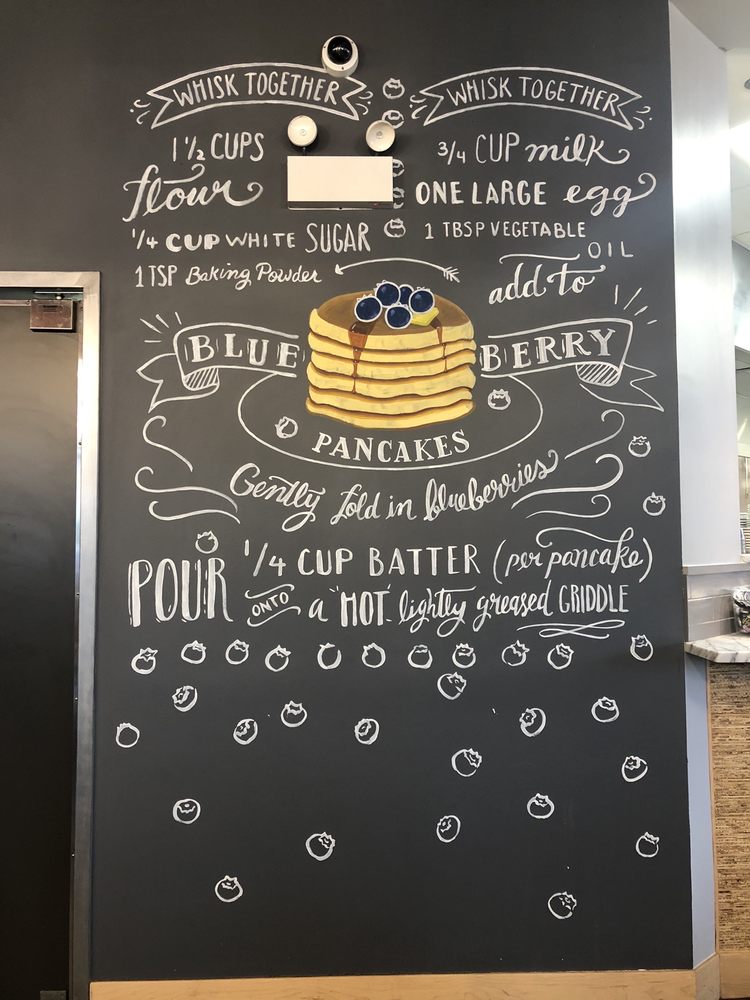 WHISK TOGETHER
1 1/2 CUPS
flour
1/4 CUP WHITE SUGAR
1 TSP Baking Powder
WHISK TOGETHER
3/4 CUP milk
ONE LARGE egg
1 TBSP VEGETABLE
OIL
add to
BLUE BERRY
PANCAKES
Gently fold in blueberries
POUR 1/4 CUP BATTER (per pancake)
ONTO a "HOT" lightly greased GRIDDLE